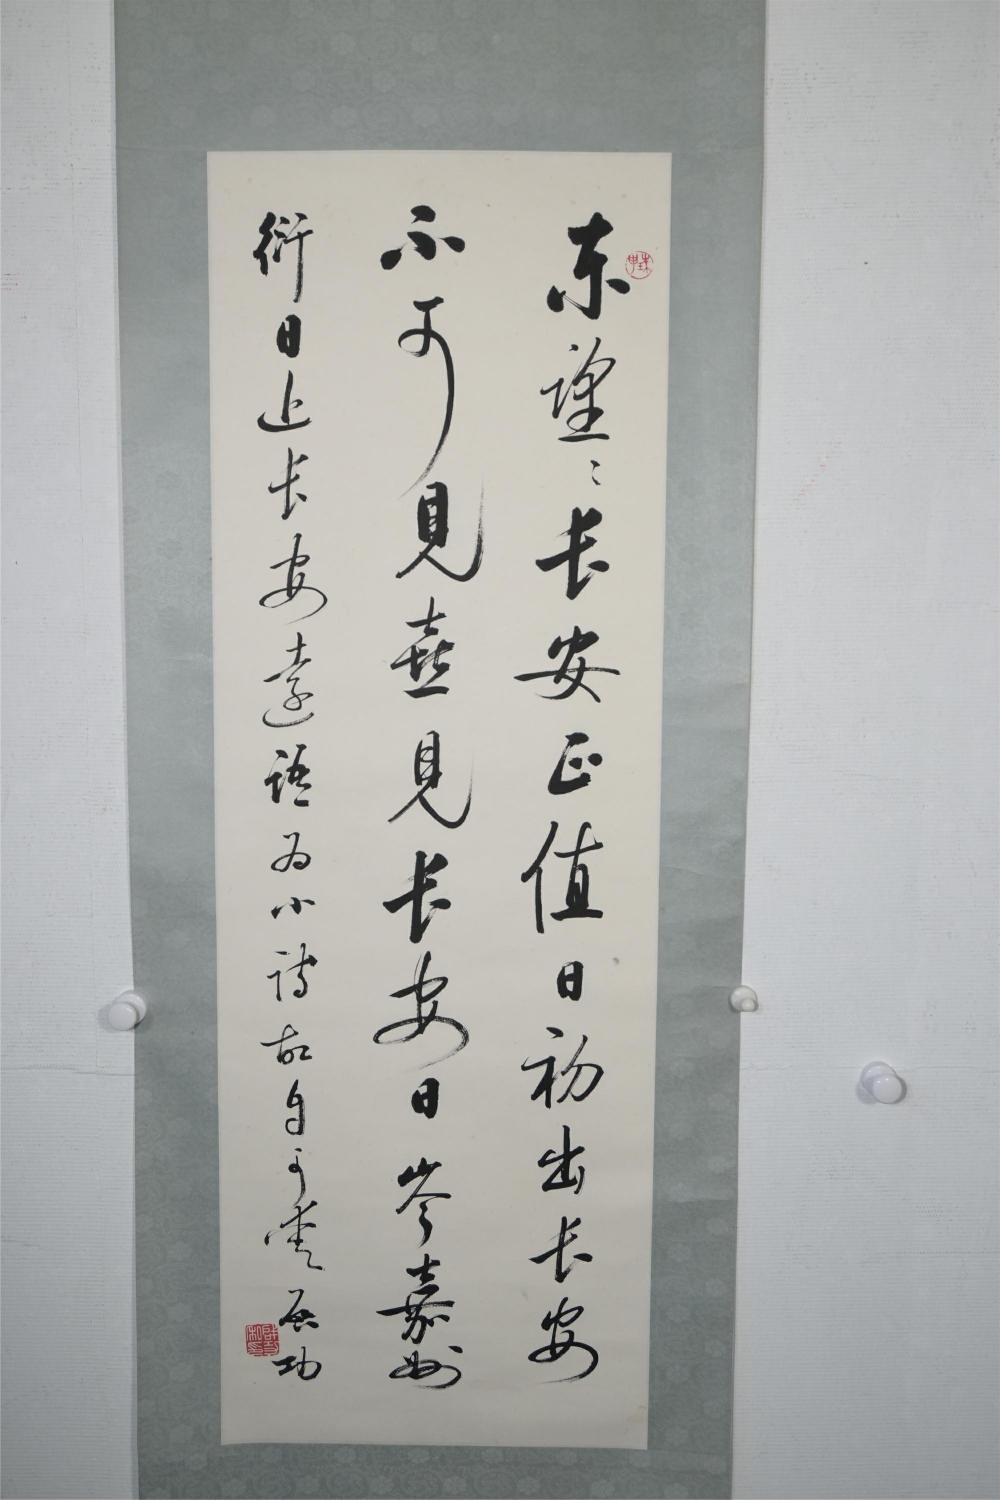 东望〻长安正值日初出长安
不可见喜見长安日岑嘉州
衍日近长安远語为小诗故自可爱启功